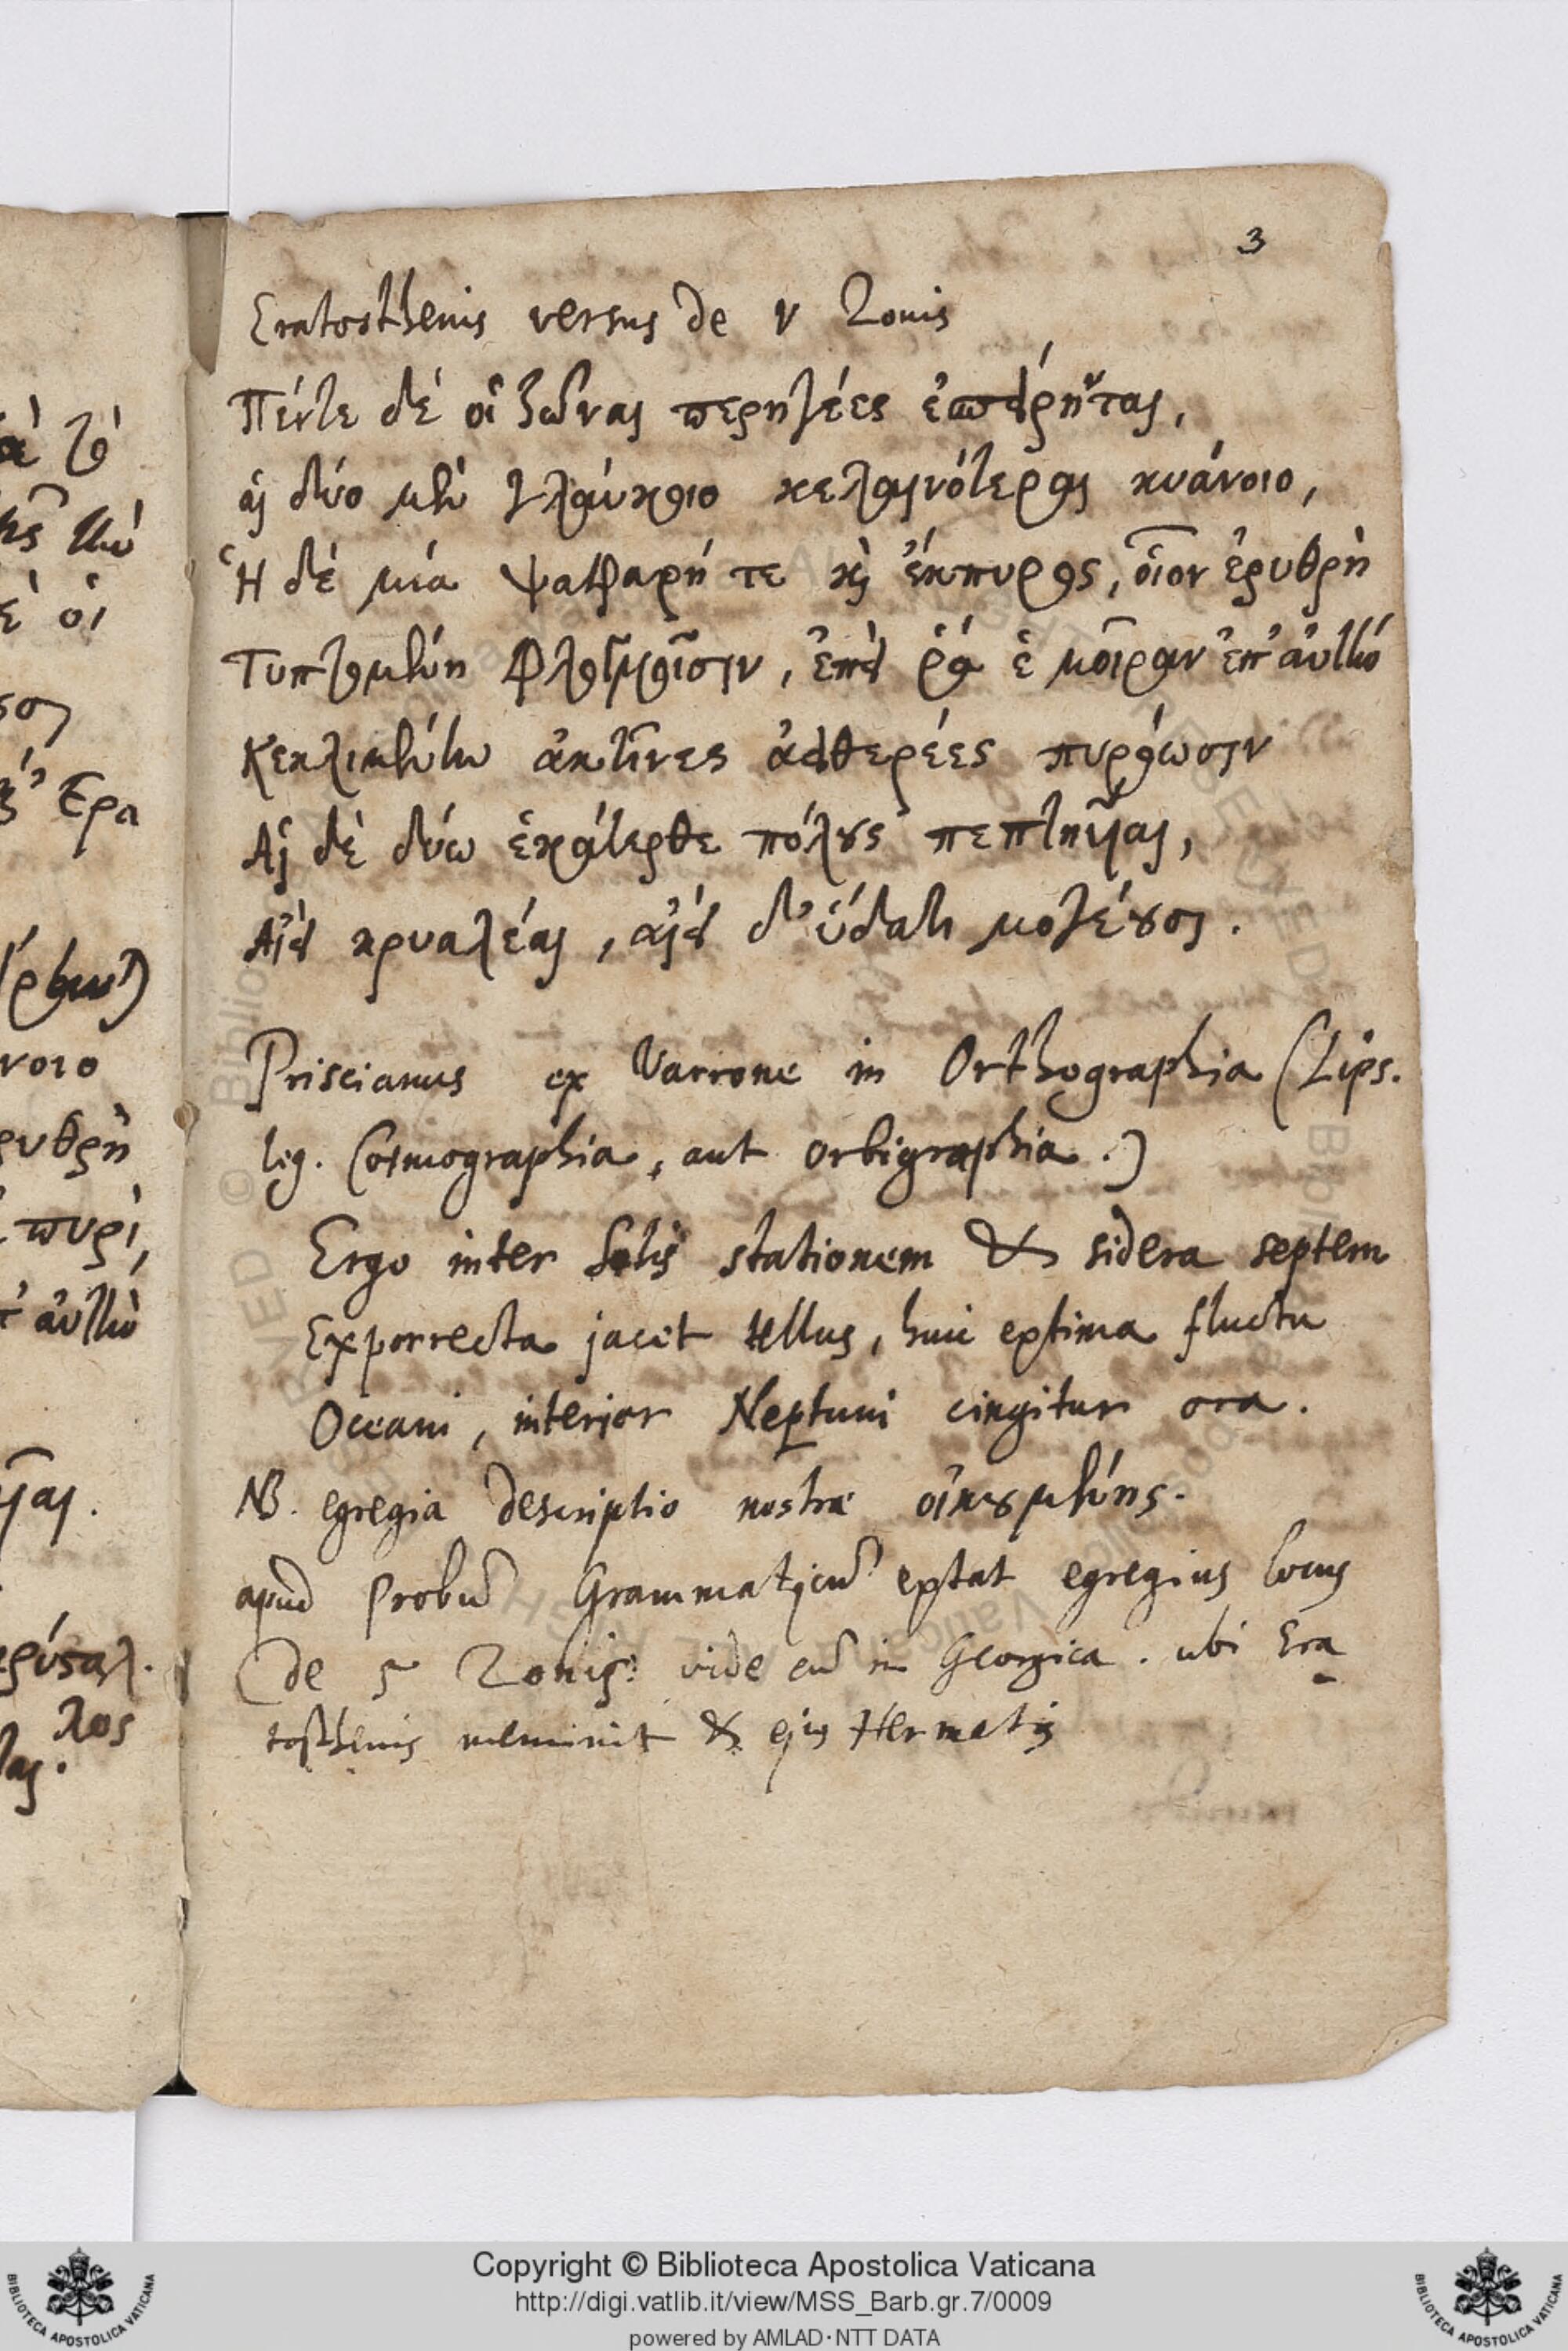 3
ὰ τὸ
Eratosthenis versus de V Zonis
Πέντε δέ οἱ ζῶναι περηγέες ἐσπείρηντας,
αἱ δύο μὲν γλαύκοιο κελαινότεραι κυάνοιο,
Ἡ δὲ μία ψαφαρή τε καὶ ἔκπυρος, οἷον ἐρυθρὴ
Τυπτομένη φλογμοῖσιν, ἐπεί ῥά ἑ μοῖραν ἐπ' αὐτὴν
Κεκλιμένην ἀκτῖνες ἀειθερέες πυρόωσιν
Αἱ δὲ δύω ἑκάτερθε πόλους πεπτηυῖαι,
Αἰεὶ κρυαλέαι, αἰεὶ δ' ὕδατι μογέουσαι.
Priscianus ex Varrone in Orthographia (Lips.
leg. Cosmographia, aut orbigraphia.)
Ergo inter Solis stationem & sidera septem
Exporrecta jacet tellus, huic extima fluctu
Oceani, interior Neptuni cingitur ora.
NB. egregia descriptio nostrae οἰκουμένης.
apud Probum Grammaticum extat egregius locus
de 5 Zonis: vide eum in Georgica. ubi Era
tosthenis meminit & ejus Hermetis
ὲ οἱ
Ἐρα
νοιο
ρυθρὴ
πυρὶ,
αὐτὴν
λος
Copyright © Biblioteca Apostolica Vaticana
http://digi.vatlib.it/view/MSS_Barb.gr.7/0009
powered by AMLAD·NTT DATA
BIBLIOTECA APOSTOLICA VATICANA
BIBLIOTECA APOSTOLICA VATICANA